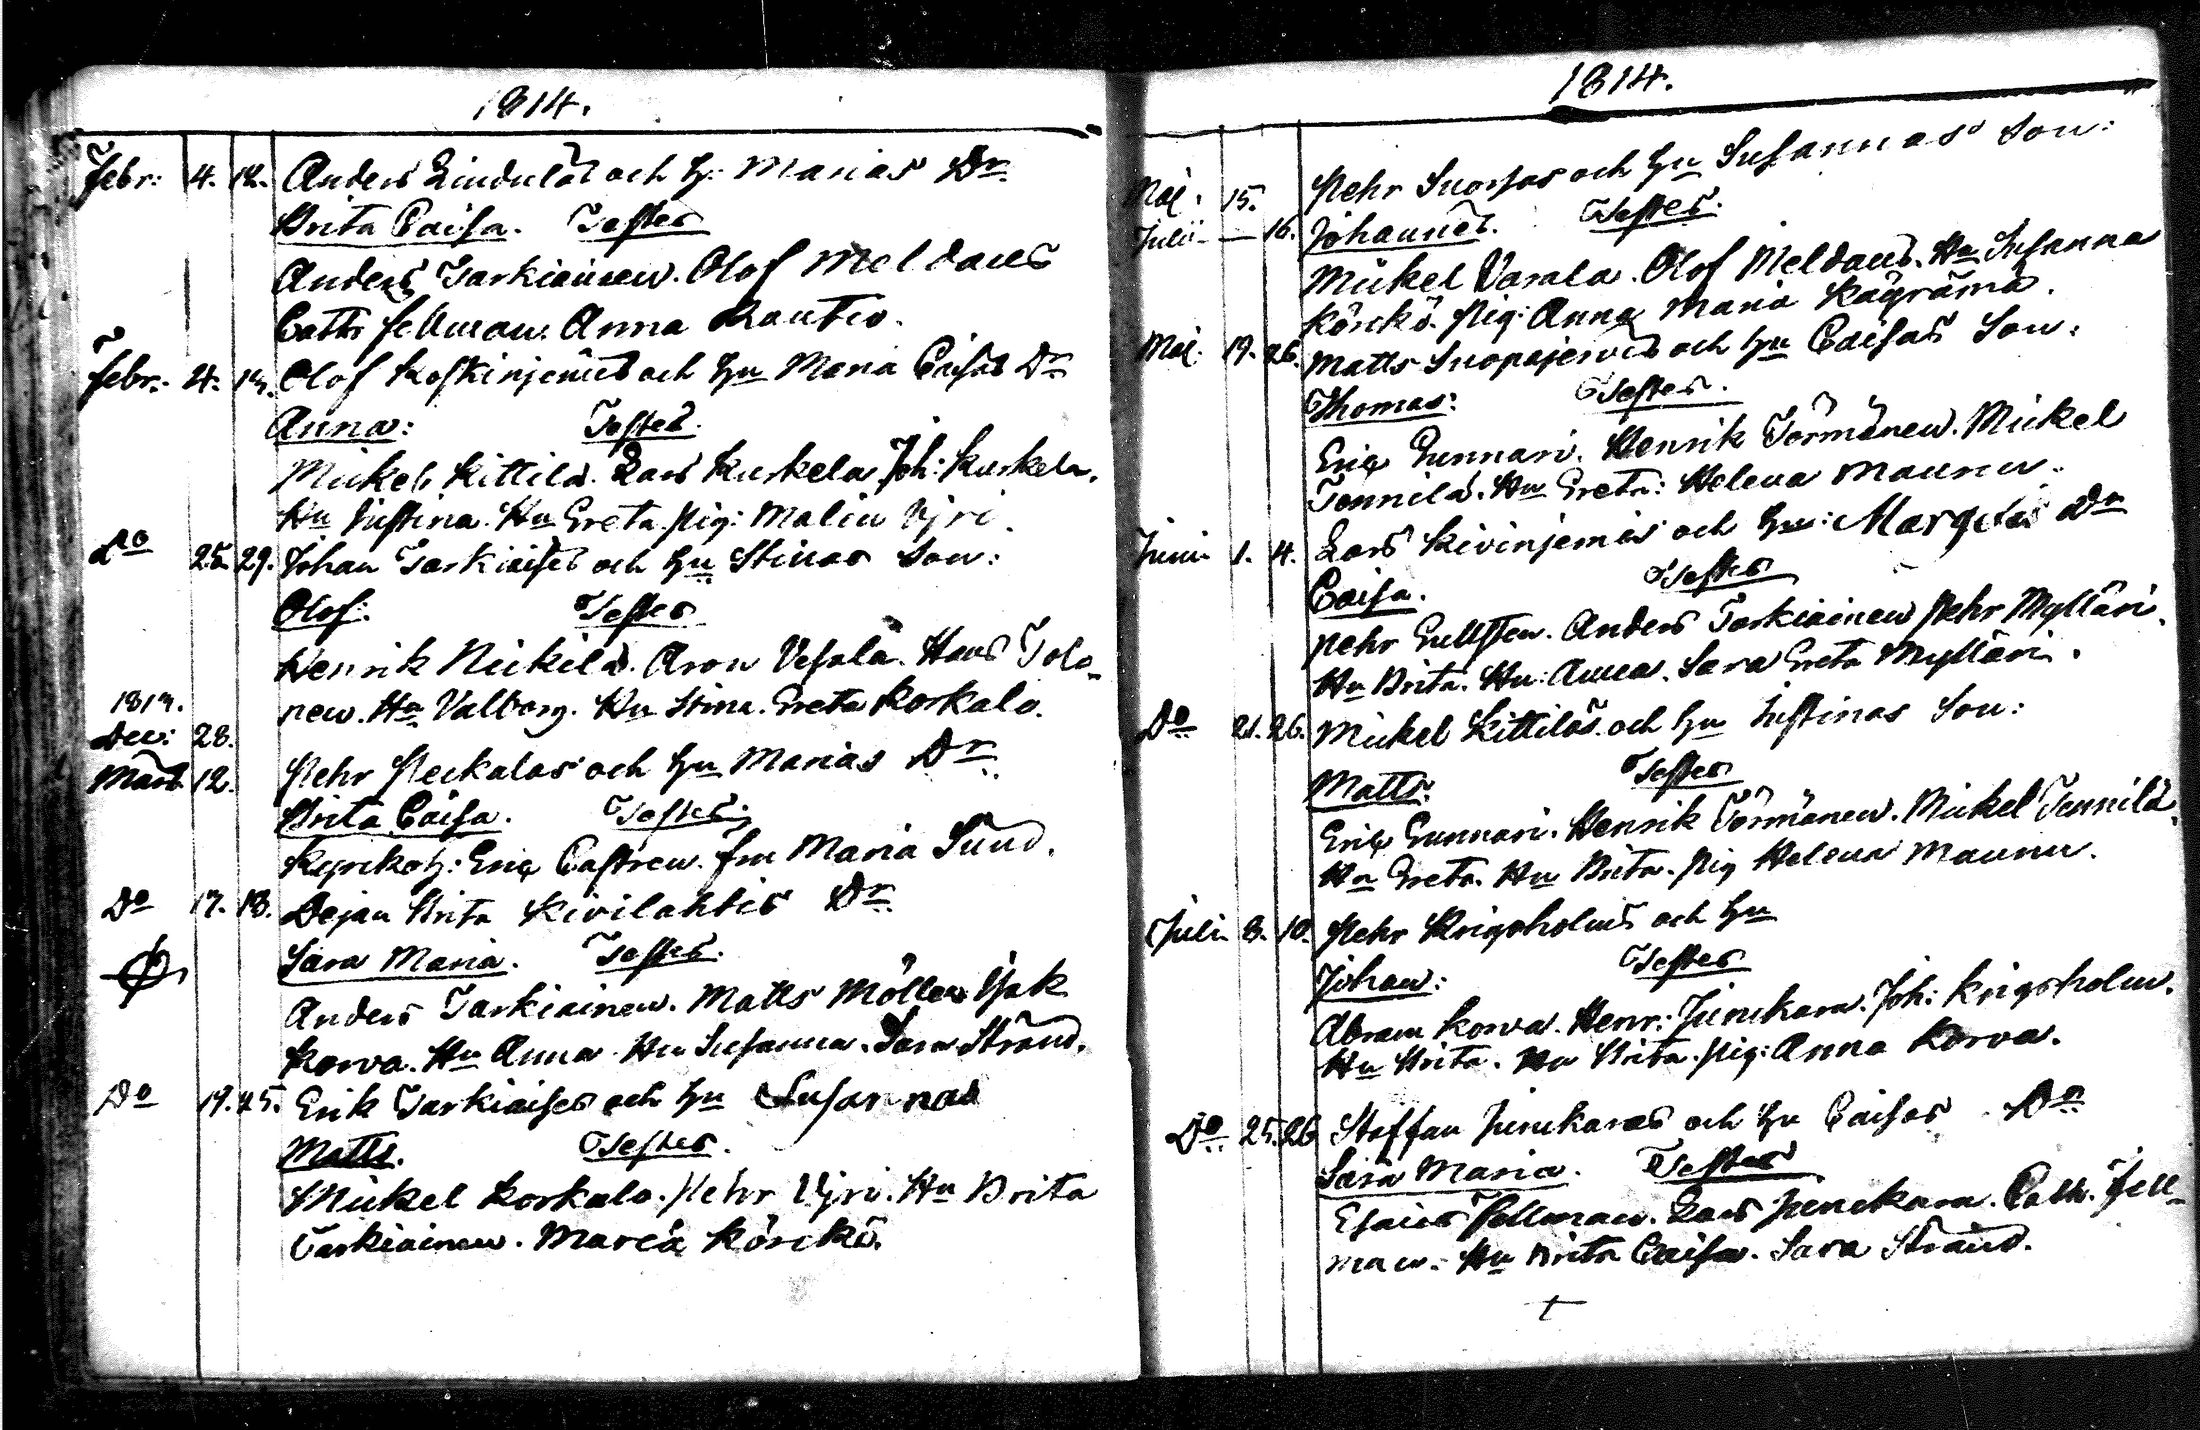 1814.
Febr: 4. 12. Anders Lindulas och h: Marias Dr
Brita Caisa. Testes
Anders Tarkiainen. Olof Meldaus
Cath: Fellman. Anna Rautio.
Febr. 4. 13. Olof Koskinjemis och Hu Maria Caisas Dr
Anna: Testes.
Mickel Kittilä. Lars Kurkela Joh: Kurkela.
Hu Justina. Hu Greta. Pig: Malin Yljri.
Do 25. 29. Johan Tarkiaises och hu Stinas Son:
Olof: Testes
Henrik Nickilä. Aron Vesala. Hans Tolo-
nen. Hu Valborg. Hu Stina. Greta Korkalo.
1813.
Dec: 28.
Mart. 12. Pehr Peckalas och hu Marias Dr
Brita Caisa. Testes:
Kyrkoh: Eriq Castren. fru Maria Sund.
Do 17. 18. Dejan Brita Kivilahtis Dr
Sara Maria. Testes.
Anders Tarkiainen. Matts Möller Isak
Korva. Hu Anna. Hu Susanna. Sara Strand.
Do 19. 25. Erik Tarkiaises och hu Susannas
Matts. Testes.
Mickel Korkalo. Pehr Yljri. Hu Brita
Tarkiainen. Maria Körckö.
1814.
Maj. 15. Pehr Suorsas och hu Susannas Son:
Julii — 16. Johannes. Testes.
Mickel Vasala. Olof Meldaus. Hu Susanna
Körckö. Pig: Anna Maria Kägrämä.
Maj. 19. 26. Matts Suopajervis och hu Caisas Son:
Thomas: Testes.
Eriq Gunnari. Henrik Törmänen. Mickel
Tennilä. Hu Greta: Helena Maunu.
Juni 1. 4. Lars Kivinjemis och hu: Margetas Dr
Caisa. Testes
Pehr Gullsten. Anders Tarkiainen Pehr Mylläri.
Hu Brita. Hu: Anna. Sara Greta Mylläri.
Do 21. 26. Mickel Kittiläs och hu Justinas Son:
Matts: Testes
Eriq Gunnari. Henrik Törmänen. Mickel Tennilä.
Hu Greta. Hu Brita. Pig Helena Maunu.
Juli 8. 10. Pehr Krigsholms och hu
Johan: Testes
Abram Korva. Henr: Junckara. Joh: Krigsholm.
Hu Brita. Hu Brita. Pig: Anna Korva.
Do 25. 26 Staffan Junckaras och hu Caisas Dr
Sara Maria. Testes
Esaias Fellman. Lars Junckara. Cath. Fell-
man. Hu Brita Caisa. Sara Strand.